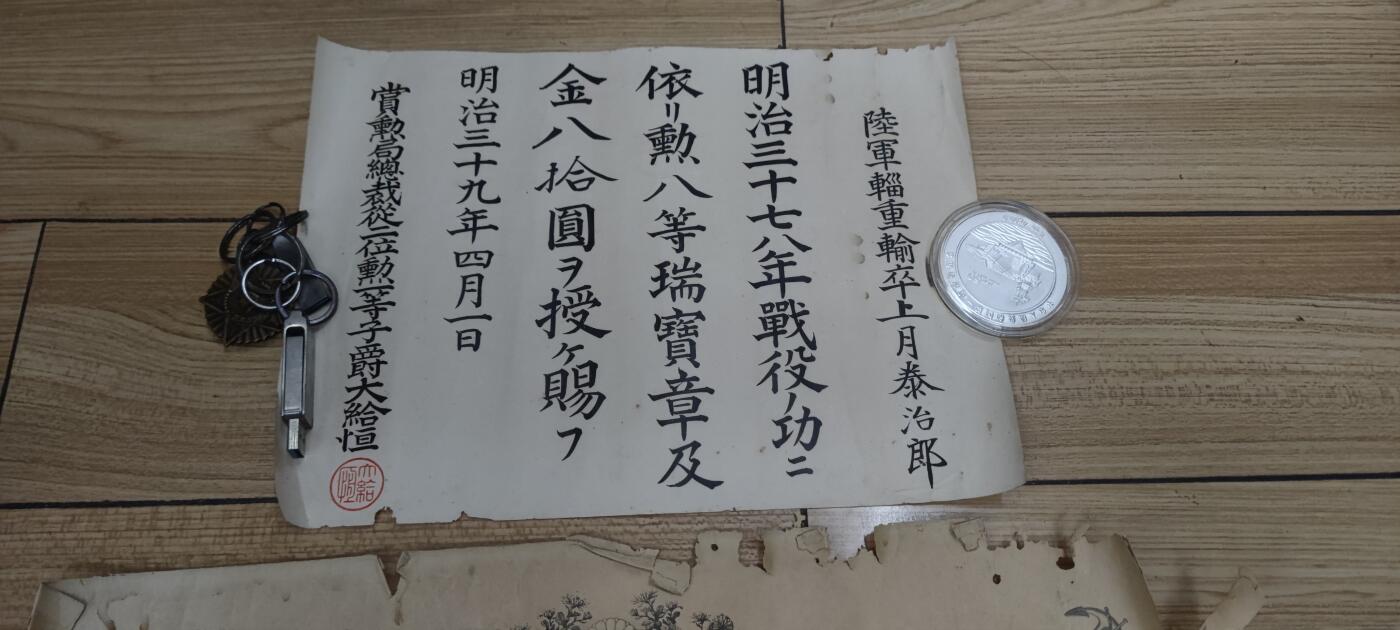 陸軍輜重輸卒上月泰治郎
明治三十七八年戰役ノ功ニ
依リ勲八等瑞寶章及
金八拾圓ヲ授ケ賜フ
明治三十九年四月一日
賞勲局總裁從一位勲一等子爵大給恒
大給恒